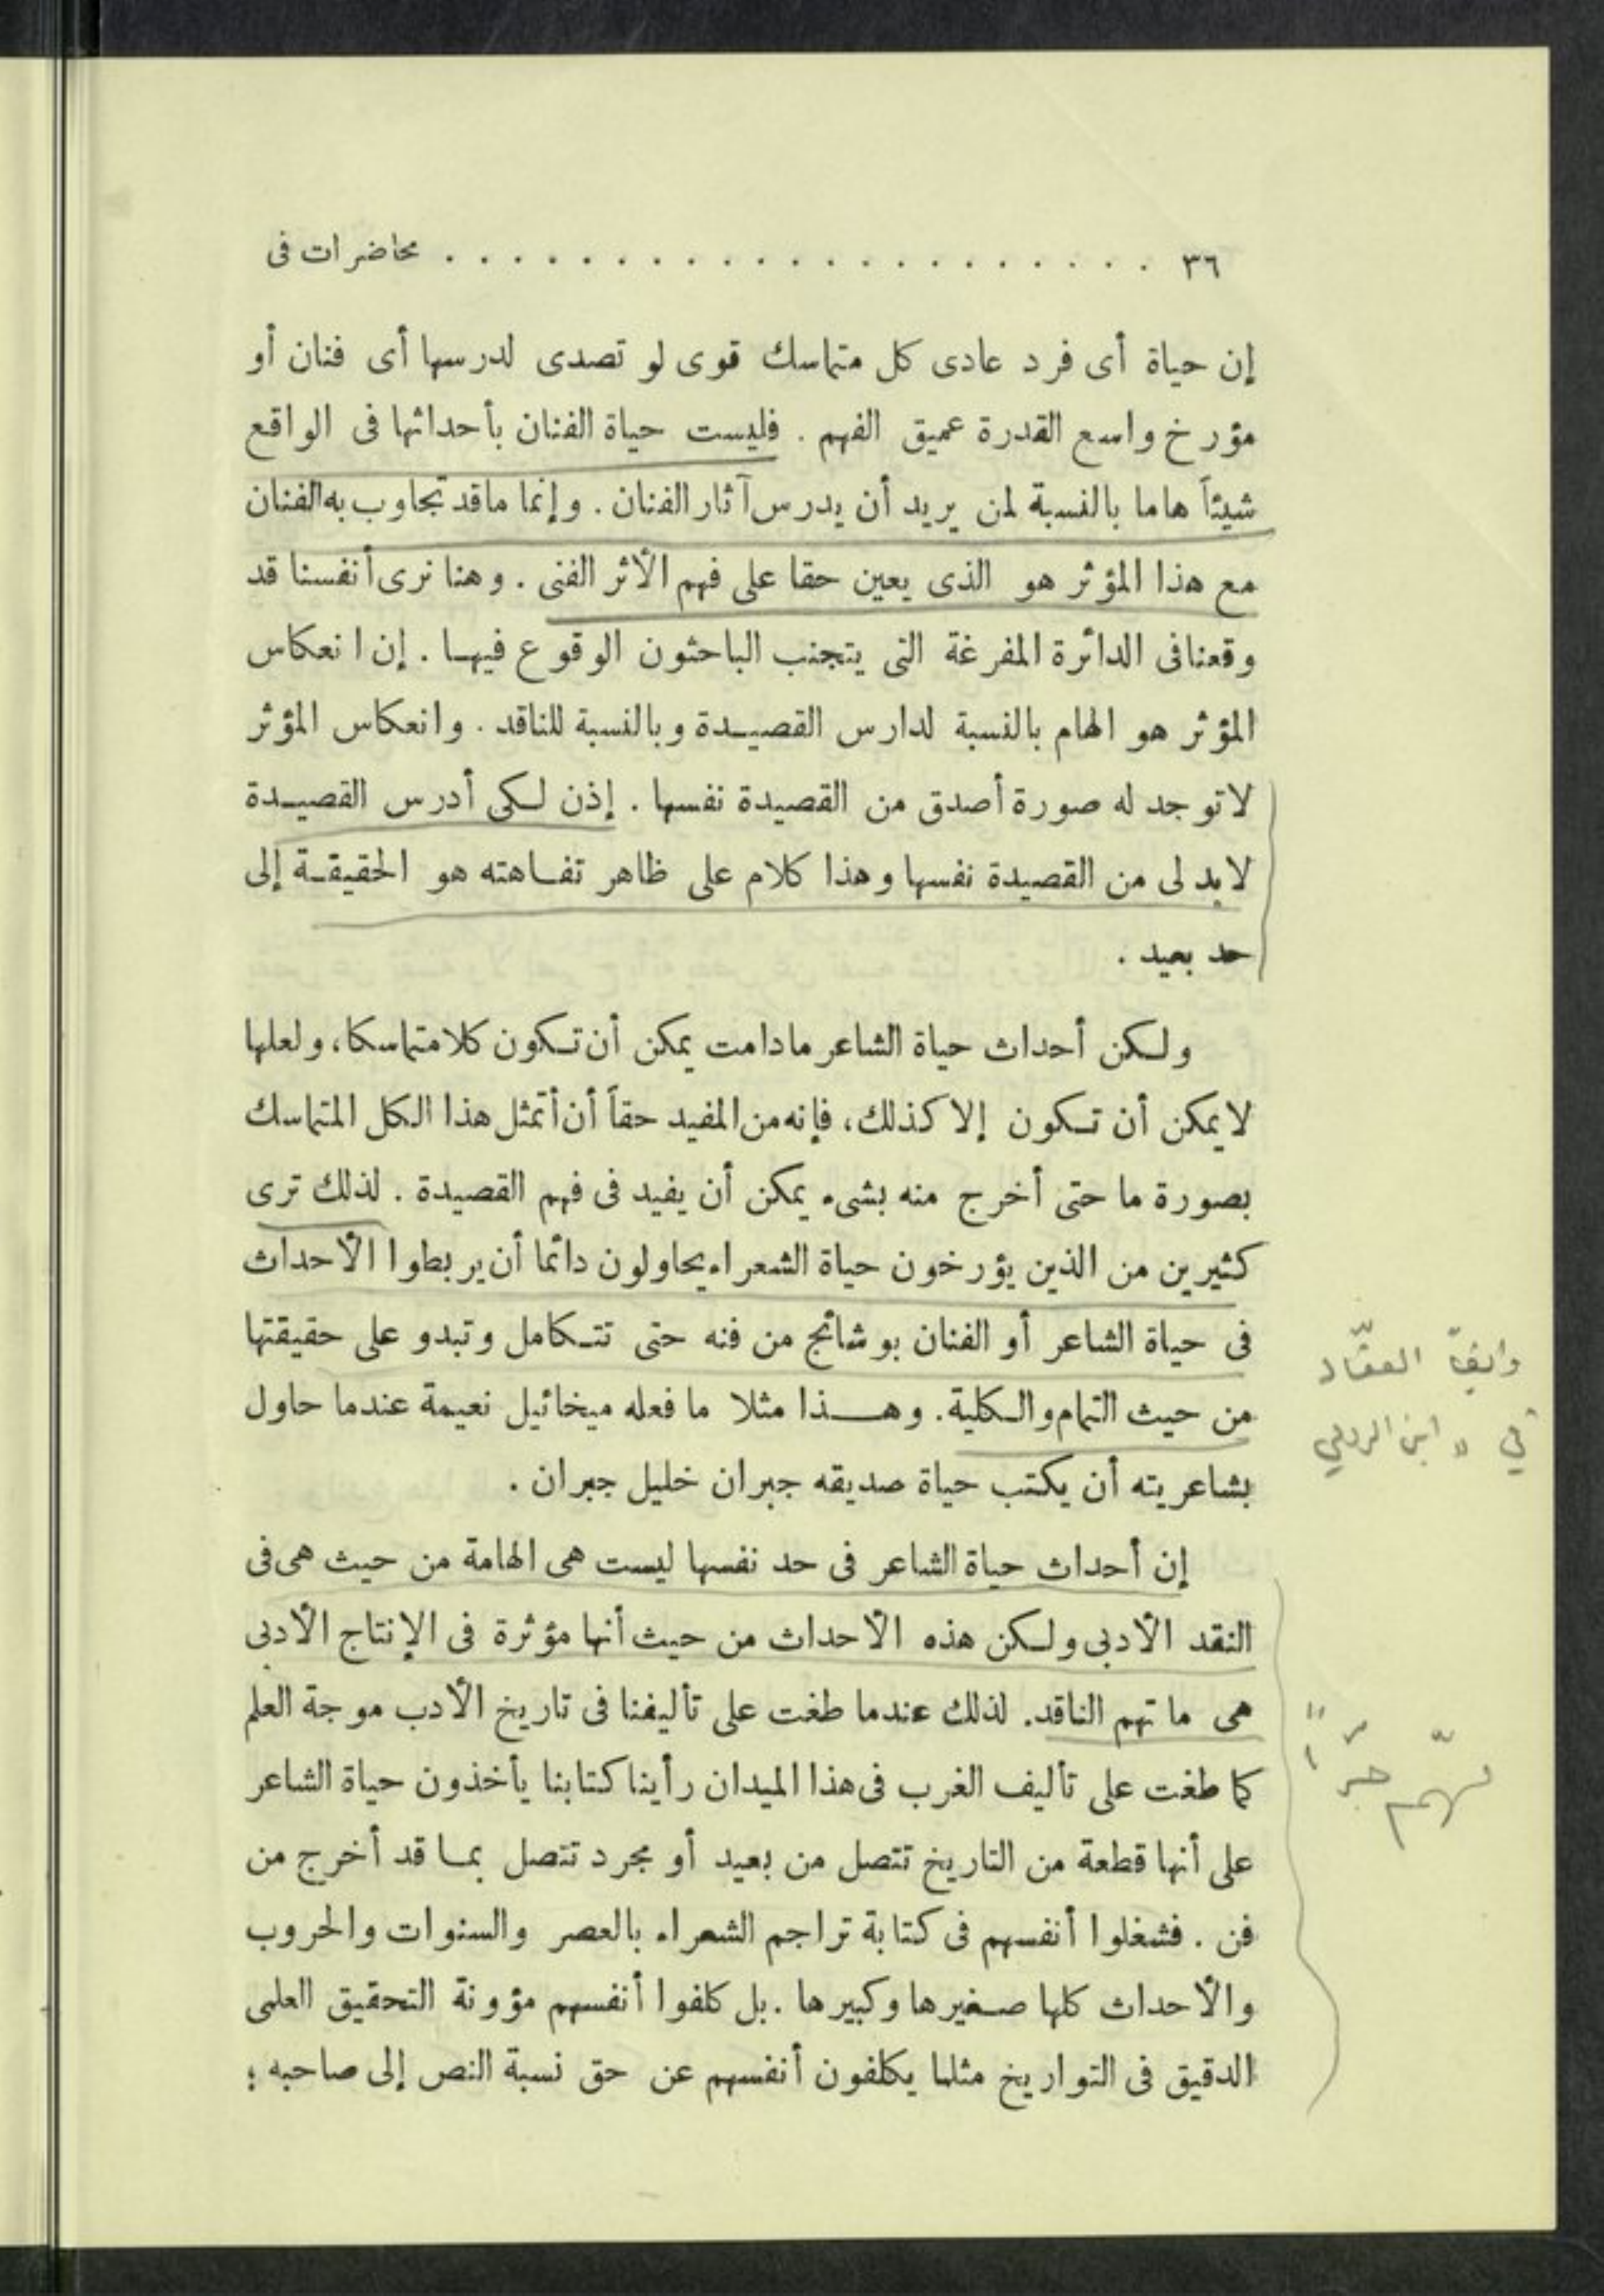 ٣٦ . . . . . . . . . . . . . . . . . . . . . محاضرات فى
إن حياة أى فرد عادى كل متماسك قوى لو تصدى لدرسها أى فنان أو
مؤرخ واسع القدرة عميق الفهم . فليست حياة الفنان بأحداثها فى الواقع
شيئاً هاما بالنسبة لمن يريد أن يدرس آثار الفنان . وإنما ماقد تجاوب به الفنان
مع هذا المؤثر هو الذى يعين حقا على فهم الأثر الفنى . وهنا نرى أنفسنا قد
وقعنا فى الدائرة المفرغة التى يتجنب الباحثون الوقوع فيها . إن انعكاس
المؤثر هو الهام بالنسبة لدارس القصيدة وبالنسبة للناقد . وانعكاس المؤثر
لا توجد له صورة أصدق من القصيدة نفسها . إذن لكى أدرس القصيدة
لابد لى من القصيدة نفسها وهذا كلام على ظاهر تفاهته هو الحقيقة إلى
حد بعيد .
ولكن أحداث حياة الشاعر مادامت يمكن أن تكون كلا متماسكا، ولعلها
لا يمكن أن تكون إلا كذلك، فإنه من المفيد حقاً أن أتمثل هذا الكل المتماسك
بصورة ما حتى أخرج منه بشىء يمكن أن يفيد فى فهم القصيدة . لذلك ترى
كثيرين من الذين يؤرخون حياة الشعراء يحاولون دائما أن يربطوا الأحداث
فى حياة الشاعر أو الفنان بوشائج من فنه حتى تتكامل وتبدو على حقيقتها
من حيث التمام والكلية. وهذا مثلا ما فعله ميخائيل نعيمة عندما حاول
بشاعريته أن يكتب حياة صديقه جبران خليل جبران .
إن أحداث حياة الشاعر فى حد نفسها ليست هى الهامة من حيث هى فى
النقد الأدبى ولكن هذه الأحداث من حيث أنها مؤثرة فى الإنتاج الأدبى
هى ما تهم الناقد. لذلك عندما طغت على تأليفنا فى تاريخ الأدب موجة العلم
كما طغت على تأليف الغرب فى هذا الميدان رأينا كتابنا يأخذون حياة الشاعر
على أنها قطعة من التاريخ تتصل من بعيد أو مجرد تتصل بما قد أخرج من
فن . فشغلوا أنفسهم فى كتابة تراجم الشعراء بالعصر والسنوات والحروب
والأحداث كلها صغيرها وكبيرها . بل كلفوا أنفسهم مؤونة التحقيق العلمى
الدقيق فى التواريخ مثلما يكلفون أنفسهم عن حق نسبة النص إلى صاحبه ؛
وايضاً العقّاد
في " ابن الرومي
مهّم جدّاً !